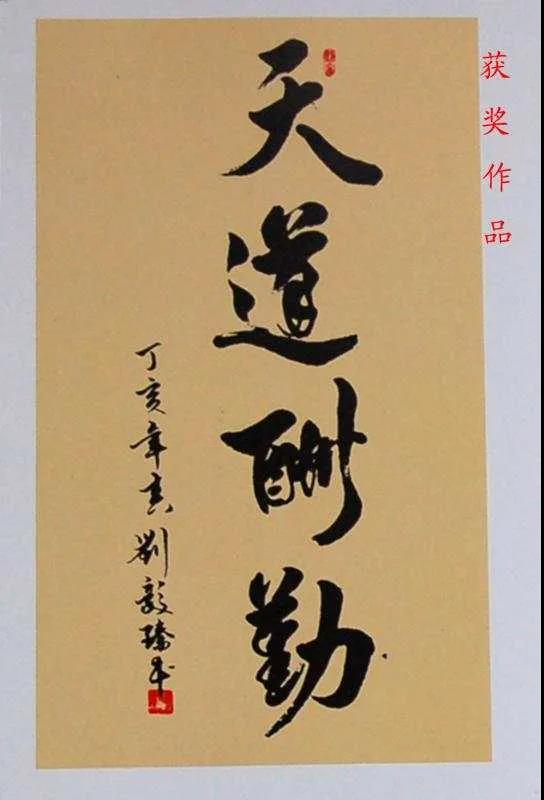 获奖作品
天道酬勤
丁亥年 劉毅臻书